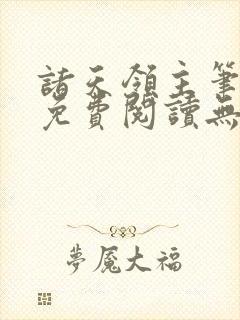 諸天領主筆
免費閱讀無
夢魘大福